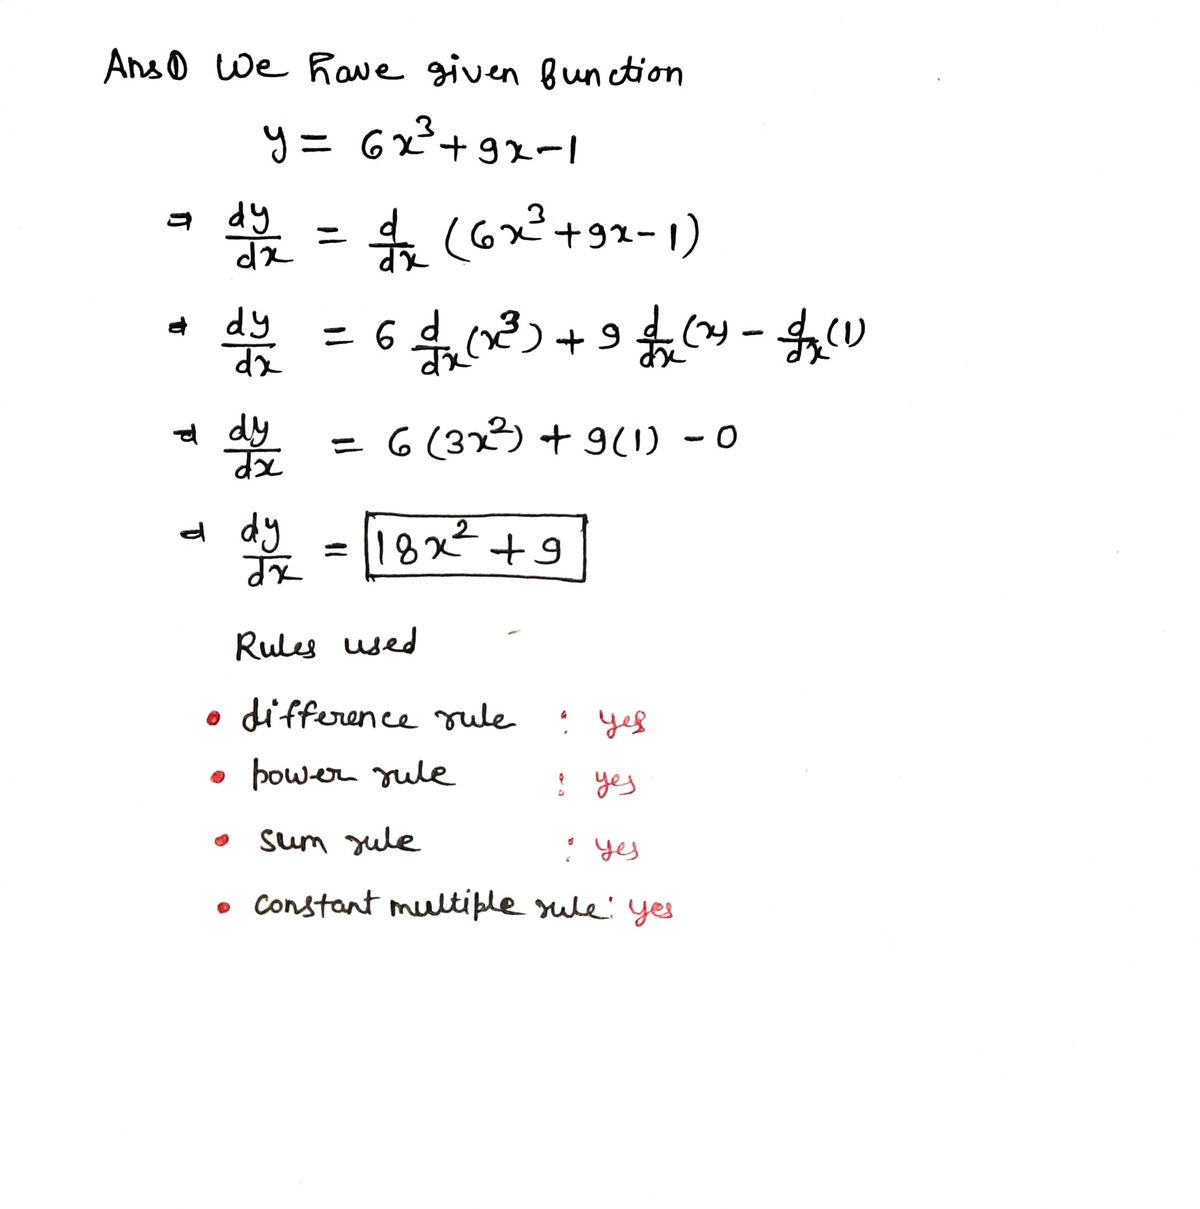 Ans① We have given function
y = 6x³ + 9x - 1
⇒ dy/dx = d/dx (6x³ + 9x - 1)
⇒ dy/dx = 6 d/dx (x³) + 9 d/dx (x) - d/dx (1)
⇒ dy/dx = 6 (3x²) + 9(1) - 0
⇒ dy/dx = 18x² + 9
Rules used
• difference rule : yes
• power rule : yes
• sum rule : yes
• constant multiple rule : yes